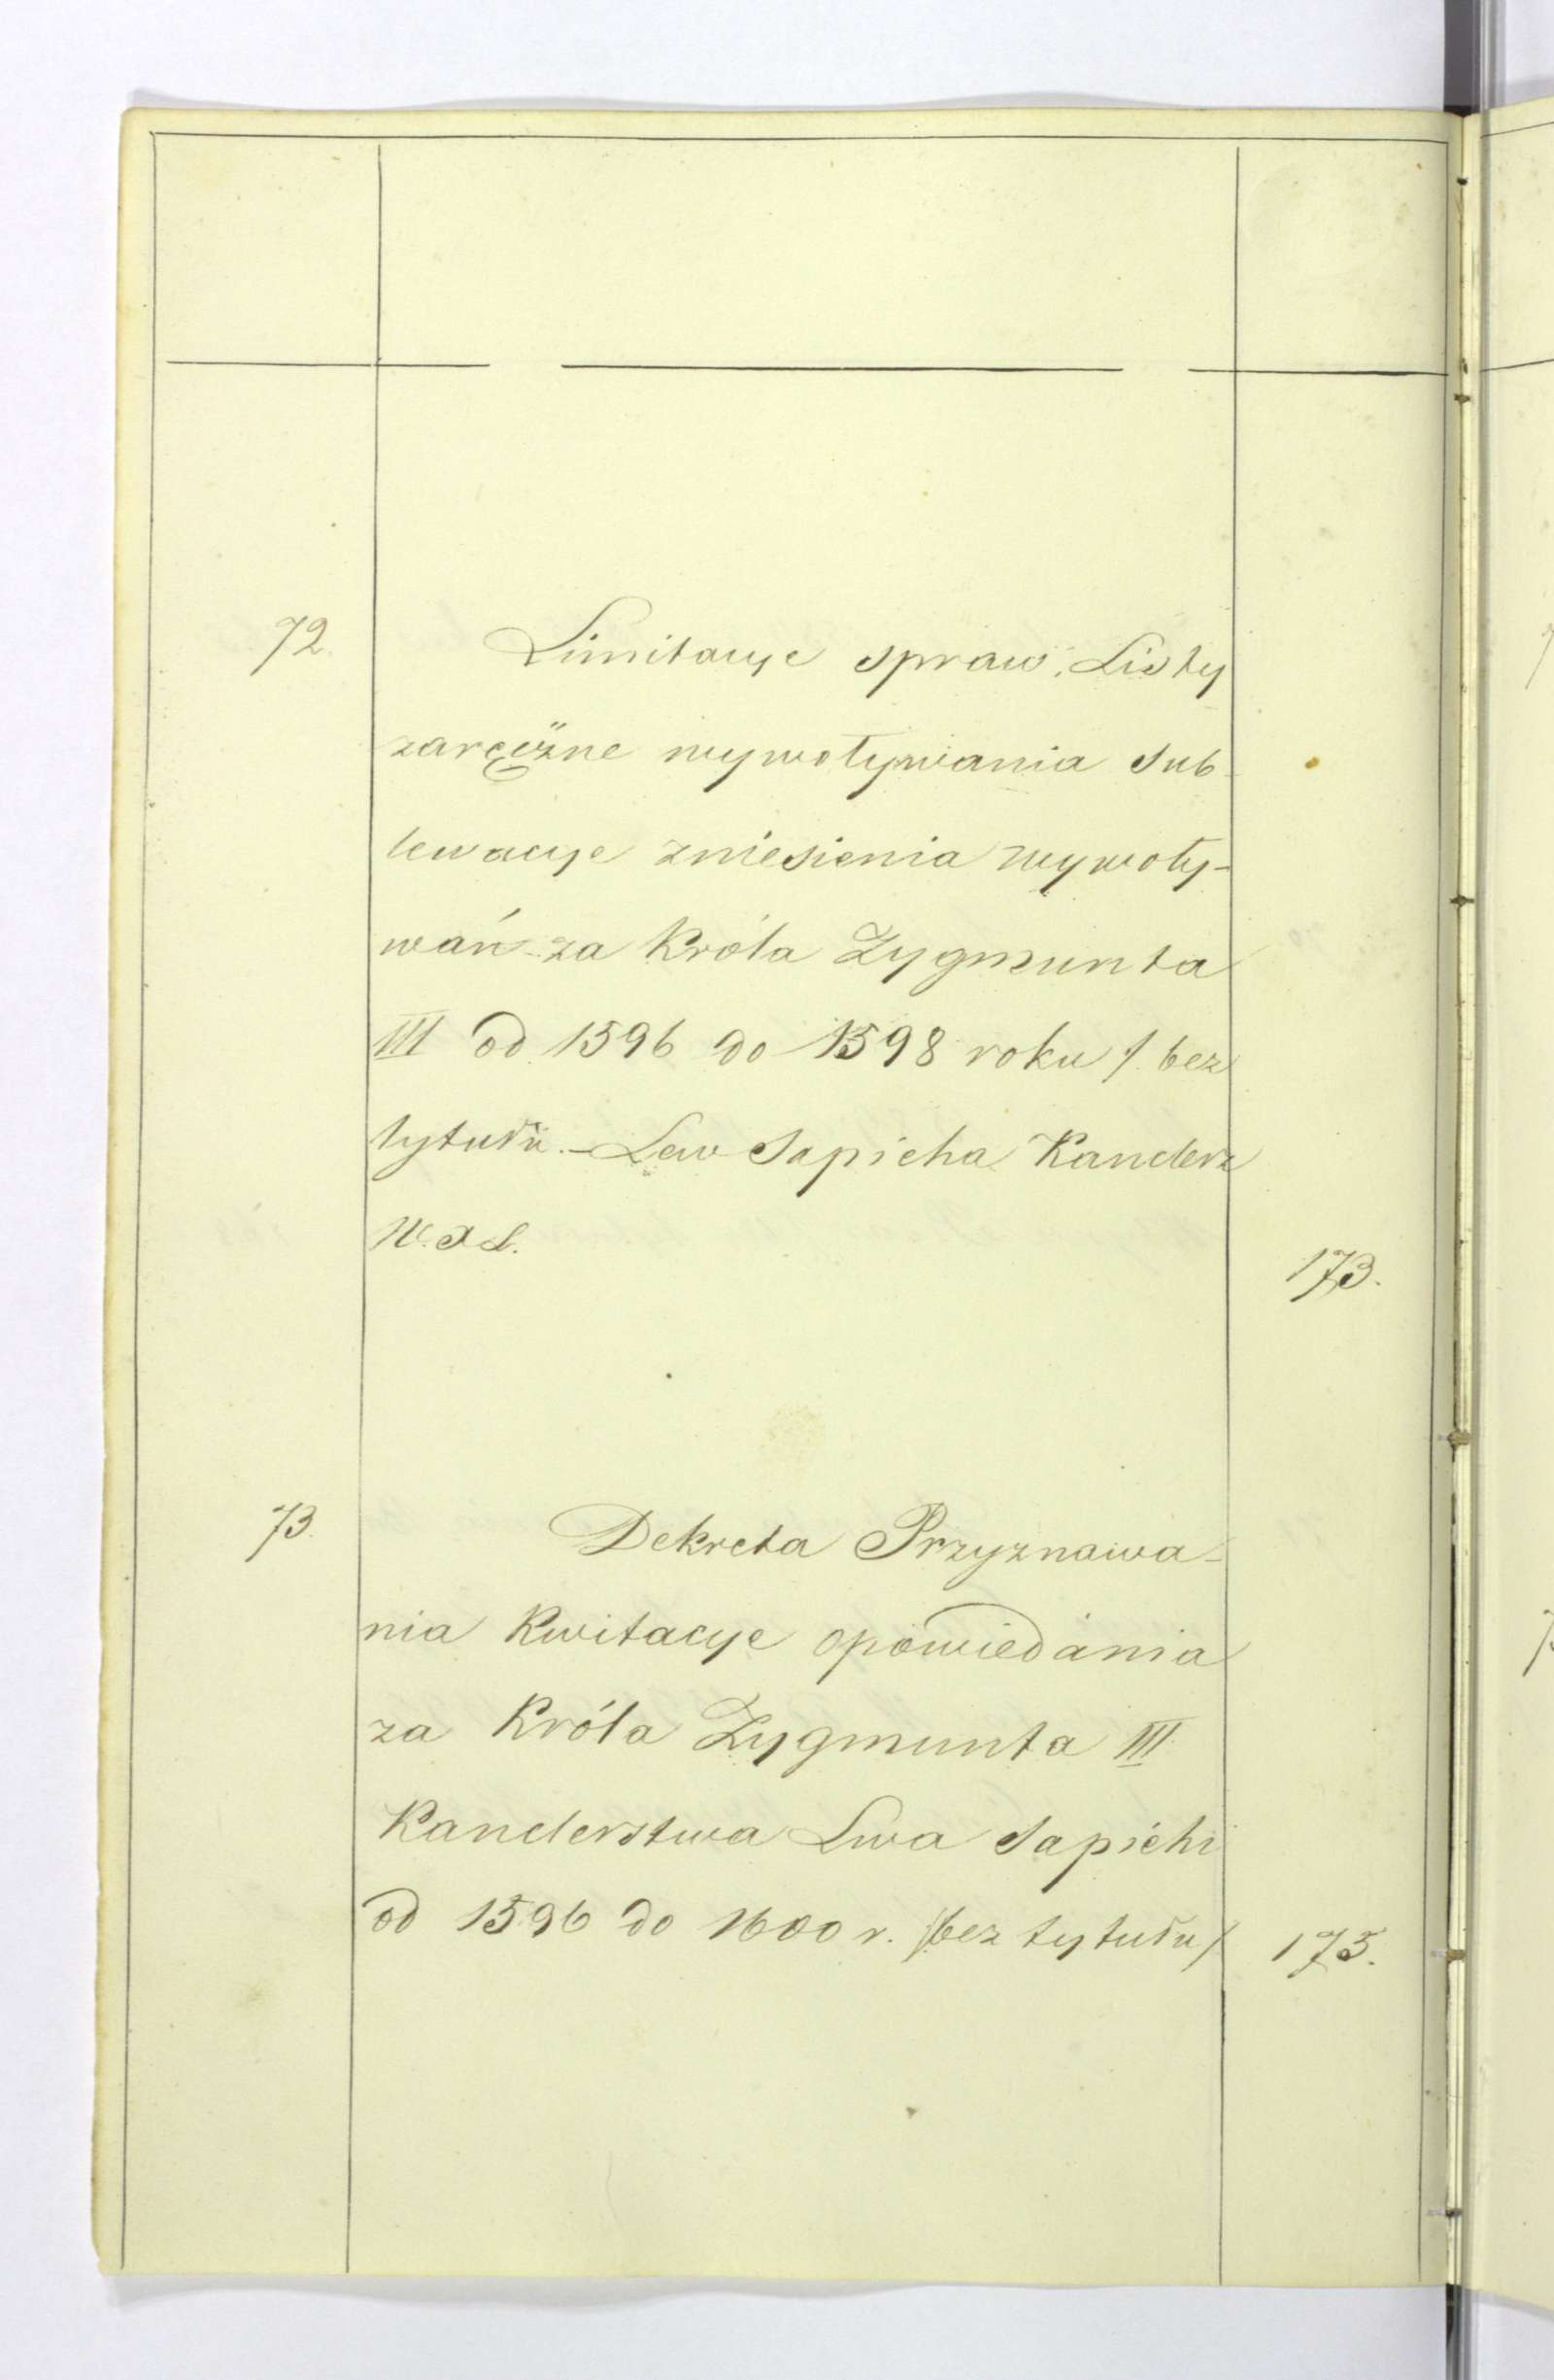 72. Limitacye spraw, Listy
zaręczne wywoływania sub-
lewacye zniesienia wywoły-
wań za Króla Zygmunta
III od 1596 do 1598 roku /. bez
tytułu. - Lew Sapieha Kanclerz
W. X L.
173.
73. Dekreta Przyznawa-
nia Kwitacye opowiedania
za Króla Zygmunta III
Kanclerstwa Lwa Sapiehi
od 1596 do 1600 r. /bez tytułu/ 175.